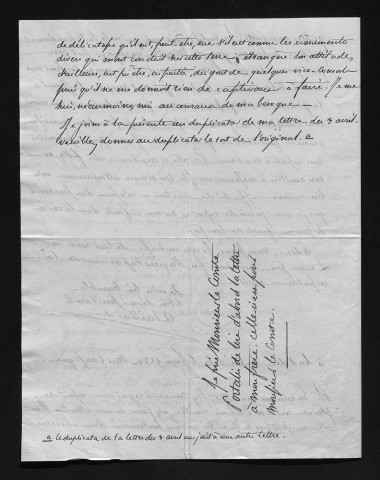 de délicatesse qu'il eut, peut-être, eue s'il eut connu les évènements
divers qui m'ont conduit sur cette terre étrangère. Son attitude,
d'ailleurs, eut pu être, en partie, du gout de quelques vice-consul
puisqu'il ne me donnait rien de à faire. Je me
suis, néanmoins, mis au
Je joins à la présente un duplicata de ma lettre du 3 avril.
Veuillez, donner au duplicata le sort de l'original. a
Je prie Monsieur le Comte
de lire d'abord la lettre
à mon frère. celle-ci
Monsieur le Comte.
a le duplicata de la lettre du 3 avril en joint à une autre lettre.